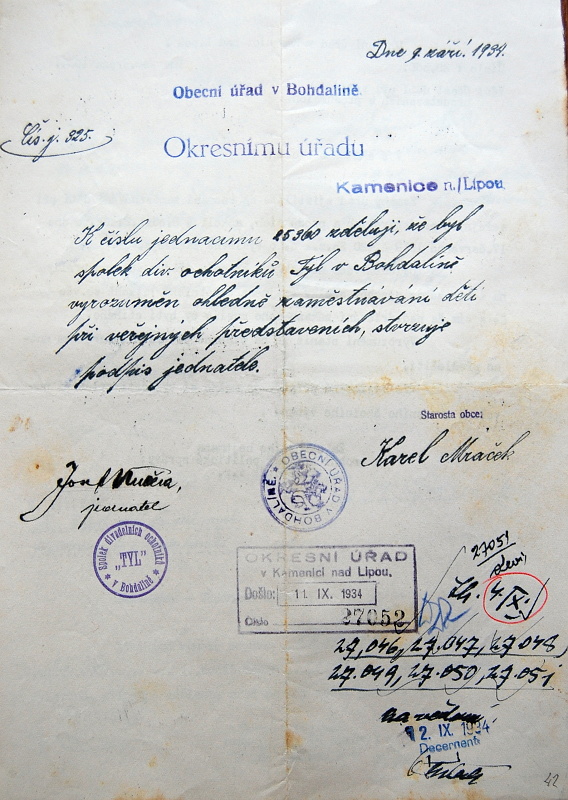 Dne 9. září. 1934.
Obecní úřad v Bohdalíně.
Čís. j. 825.
Okresnímu úřadu
Kamenice n./Lipou.
K číslu jednacímu 25360 zděluji, že byl
spolek div. ochotníků Tyl v Bohdalíně
vyrozuměn ohledně zaměstnávání dětí
při veřejných představeních, stvrzuje
podpis jednatele.
Starosta obce:
Karel Mraček
Josef
jednatel
OBECNÍ ÚŘAD V BOHDALÍNĚ
Spolek divadelních ochotníků
„TYL"
v Bohdalíně
OKRESNÍ ÚŘAD
v Kamenici nad Lipou.
Došlo: 11 IX. 1934
Číslo 27052
27051
4/IX.
27,046, 27.047, 27.048,
27.049, 27.050, 27.051
na vědomí
12. IX. 1934
Decernent:
42